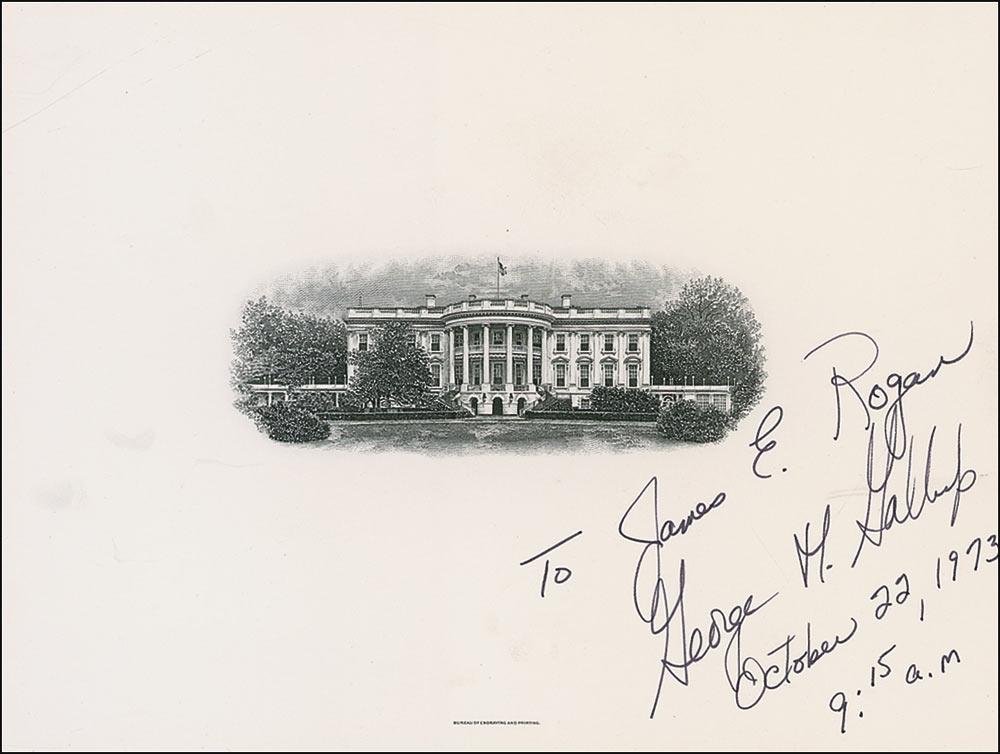 To James E. Rogan
George H. Gallup
October 22, 1973
9:15 a.m
BUREAU OF ENGRAVING AND PRINTING.